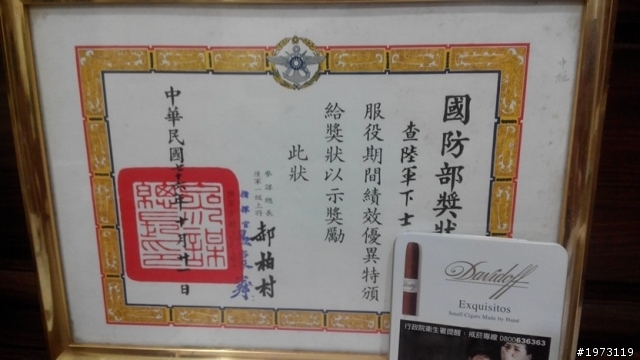 國防部獎狀
查陸軍下士
服役期間績效優異特頒
給獎狀以示獎勵
此狀
參謀總長
陸軍一級上將
郝柏村
中華民國七六年
月廿一日
參謀總長印
Davidoff
Exquisitos
Small Cigars Made by Hand
行政院衛生署提醒・戒菸專線 0800636363
#1973119